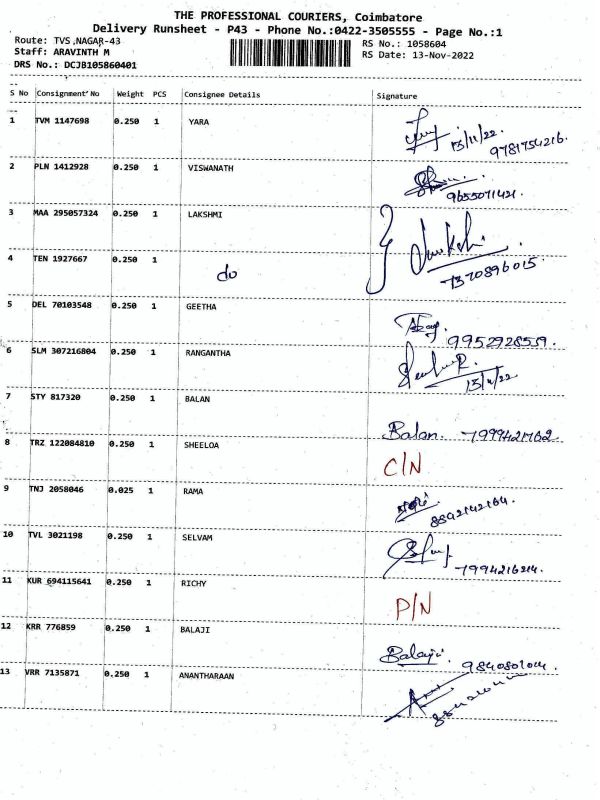 THE PROFESSIONAL COURIERS, Coimbatore
Delivery Runsheet - P43 - Phone No.:0422-3505555 - Page No.:1
Route: TVS NAGAR-43 RS No.: 1058604
Staff: ARAVINTH M RS Date: 13-Nov-2022
DRS No.: DCJB105860401
S No Consignment No Weight PCS Consignee Details Signature
1 TVM 1147698 0.250 1 YARA
13/11/22. 9781754216.
2 PLN 1412928 0.250 1 VISWANATH
9655071421.
3 MAA 295057324 0.250 1 LAKSHMI
4 TEN 1927667 0.250 1 do
7370896015.
5 DEL 70103548 0.250 1 GEETHA
9952928559.
6 SLM 307216804 0.250 1 RANGANTHA
13/11/22
7 STY 817320 0.250 1 BALAN
Balan. 7999421762
8 TRZ 122084810 0.250 1 SHEELOA
C/N
9 TNJ 2058046 0.025 1 RAMA
8892142164.
10 TVL 3021198 0.250 1 SELVAM
7994216214.
11 KUR 694115641 0.250 1 RICHY
P/N
12 KRR 776859 0.250 1 BALAJI
Balaji. 9840801014.
13 VRR 7135871 0.250 1 ANANTHARAAN